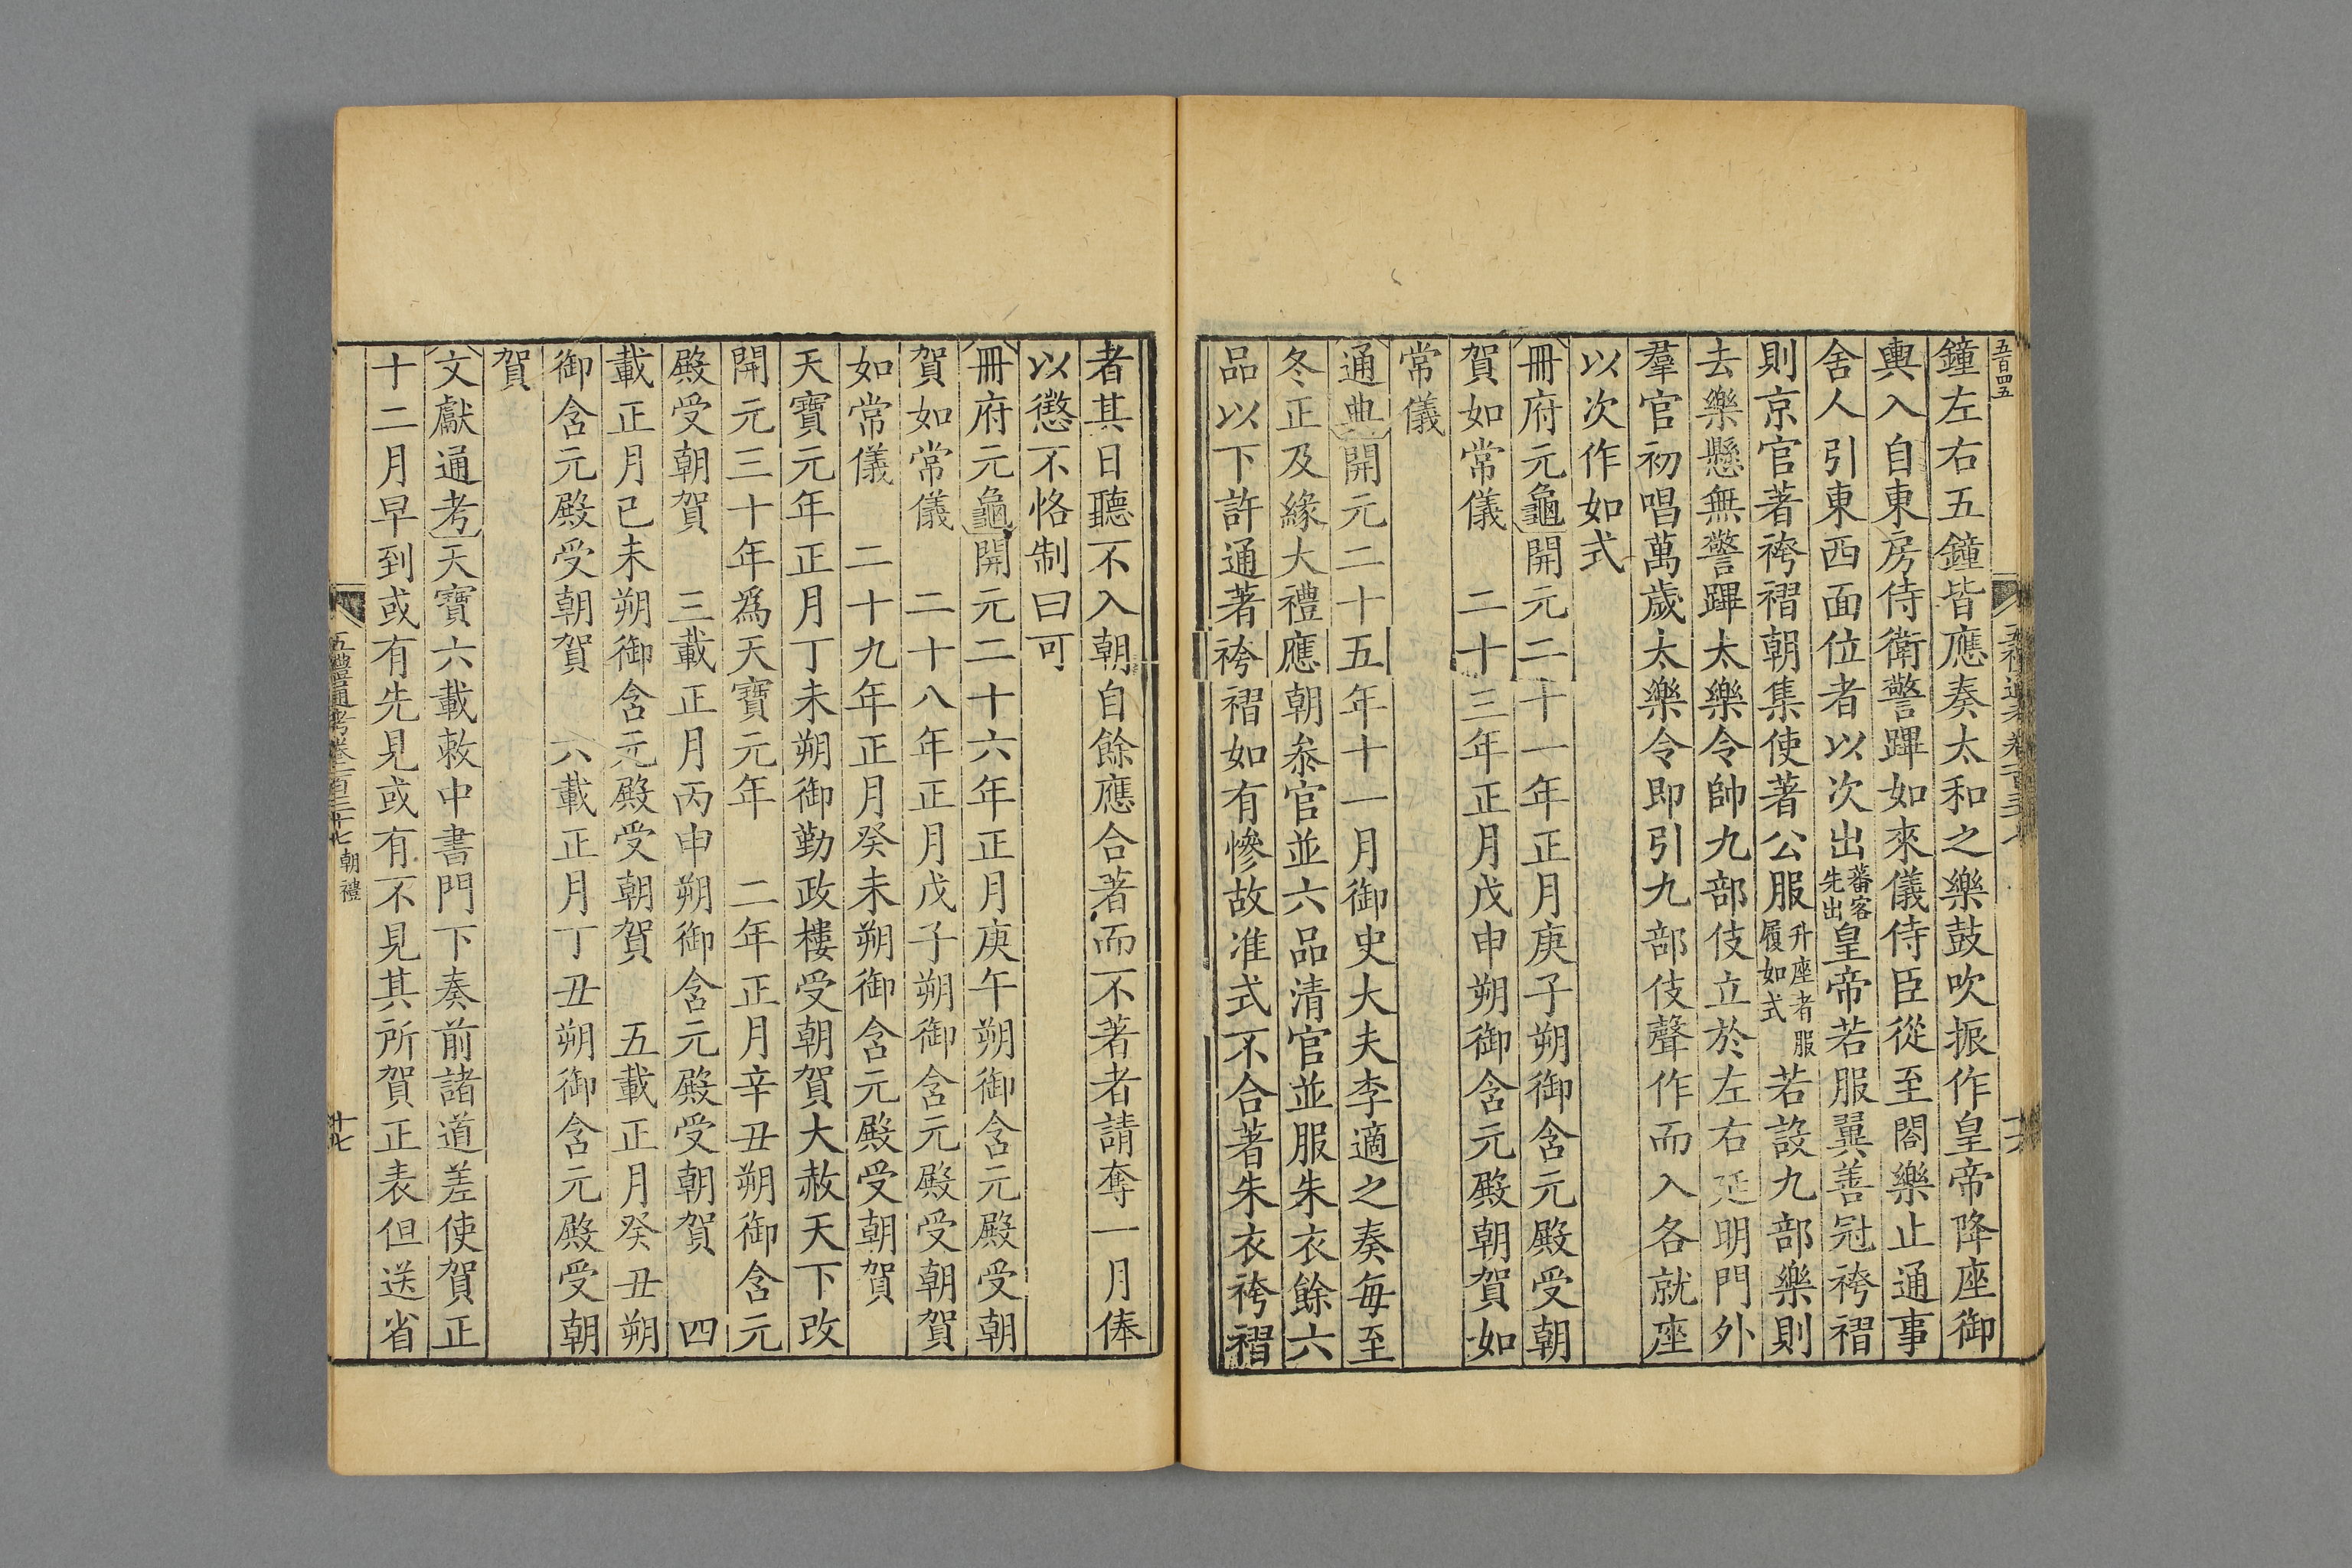 五百四五
鐘左右五鐘皆應奏太和之樂鼓吹振作皇帝降座御
輿入自東房侍衛警蹕如來儀侍臣從至閤樂止通事
舍人引東西面位者以次出蕃客先出皇帝若服翼善冠袴褶
則京官著袴褶朝集使著公服升座者服履如式若設九部樂則
去樂懸無警蹕太樂令帥九部伎立於左右延明門外
羣官初唱萬歲太樂令即引九部伎聲作而入各就座
以次作如式
冊府元龜開元二十一年正月庚子朔御含元殿受朝
賀如常儀　二十三年正月戊申朔御含元殿朝賀如
常儀
通典開元二十五年十一月御史大夫李適之奏每至
冬正及緣大禮應朝叅官並六品清官並服朱衣餘六
品以下許通著袴褶如有慘故准式不合著朱衣袴褶
者其日聽不入朝自餘應合著而不著者請奪一月俸
以懲不恪制曰可
冊府元龜開元二十六年正月庚午朔御含元殿受朝
賀如常儀　二十八年正月戊子朔御含元殿受朝賀
如常儀　二十九年正月癸未朔御含元殿受朝賀
天寶元年正月丁未朔御勤政樓受朝賀大赦天下改
開元三十年爲天寶元年　二年正月辛丑朔御含元
殿受朝賀　三載正月丙申朔御含元殿受朝賀　四
載正月已未朔御含元殿受朝賀　五載正月癸丑朔
御含元殿受朝賀　六載正月丁丑朔御含元殿受朝
賀
文獻通考天寶六載敕中書門下奏前諸道差使賀正
十二月早到或有先見或有不見其所賀正表但送省
五禮通考卷一百三十七 朝禮
十七